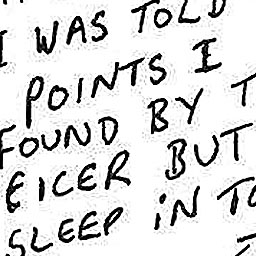 I WAS TOLD
POINTS I
FOUND BY T
EICER BUT
SLEEP IN TO